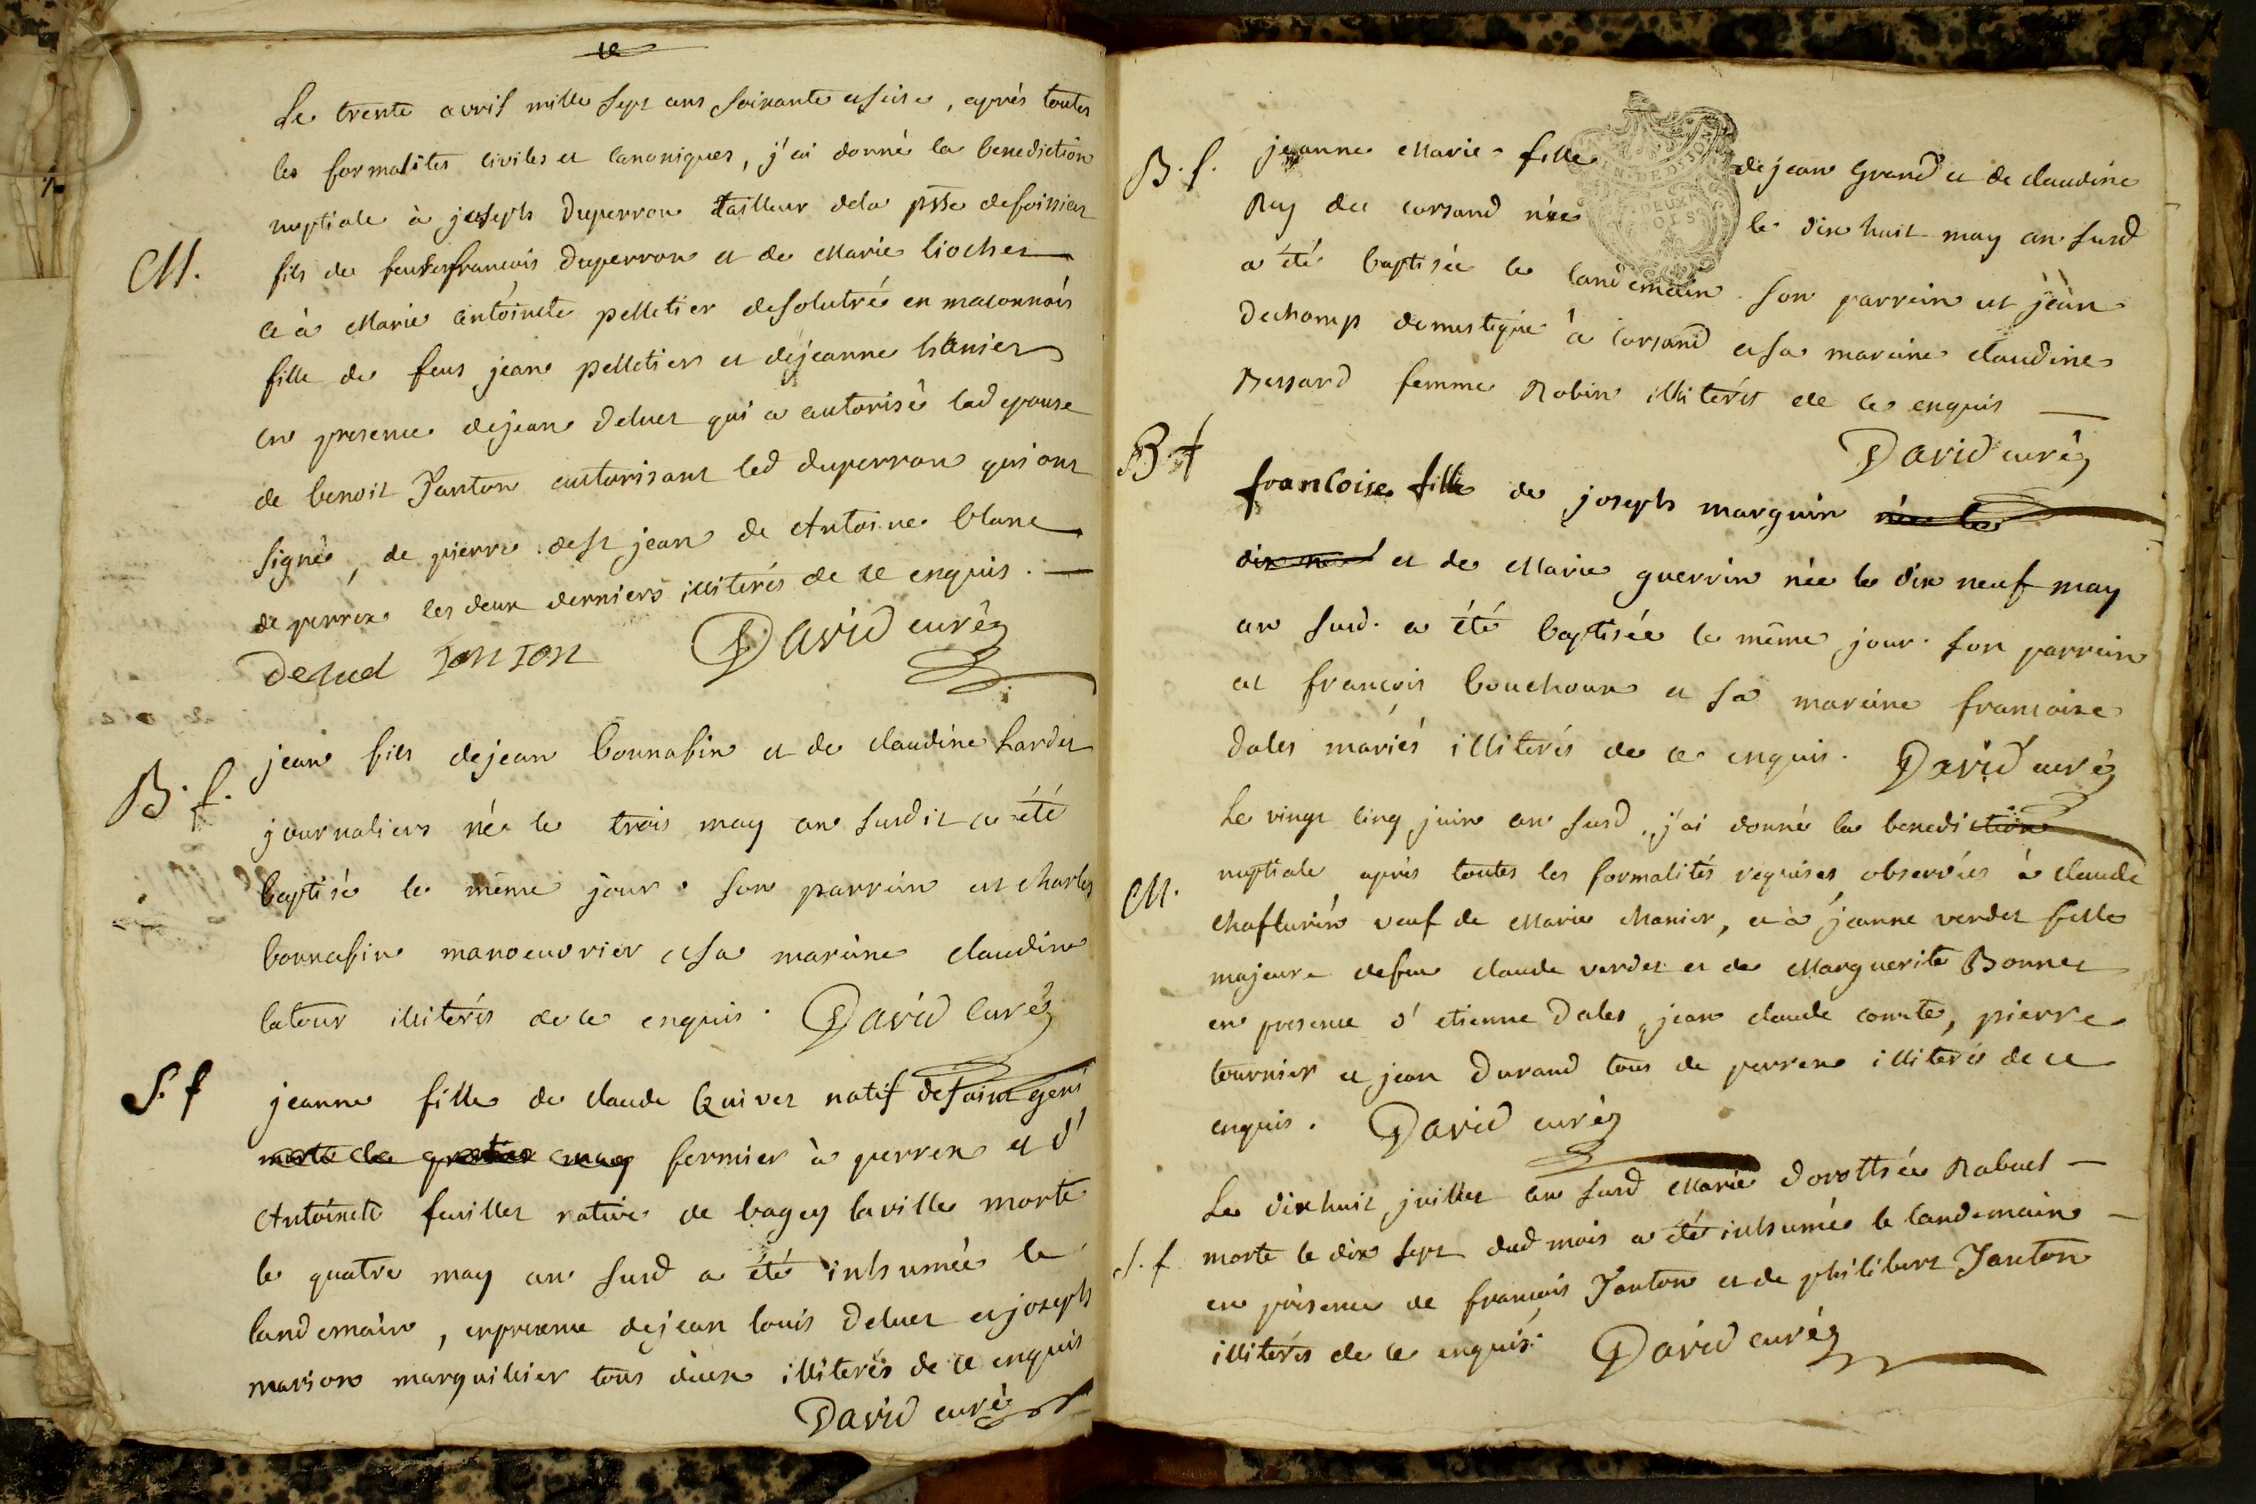 Le trente avril mille sept cens soixante et seise, après toutes
les formalités civiles et canoniques, j'ai donné la benediction
nuptiale à joseph Duperron tailleur dela psse defoissiat
M. fils de feu françois Duperron et de Marie liochet
et à Marie antoinete pelletier desolutré en maconnois
fille de feus jean pelletier et dejeanne
en presence dejean Deluet qui a autorisé lad epouse
de benoit Janton autorisant led duperron qui ont
signé, de pierre dest jean de Antoine blanc
de perrex les deux derniers illiterés de ce enquis.
Delued JonTon David curé
B. f. jean fils dejean bonnafin et de claudine hardet
journaliers né le trois may an susdit a été
baptisé le même jour. son parrein est charles
bonnafin manoeuvrier et sa mareine claudine
latour illiterés de ce enquis. David curé
S. f jeanne fille de claude Quivet natif de saint geni
fermier à perrex et d'
Antoinete feuillet native de bagey laville morte
le quatre may an susd a été inhumée le
landemain, enpresence dejean louis Deluet et joseph
marion marguillier tous deux illiterés de ce enquis
David curé
B. f. jeanne Marie fille dejean Grand et de claudine
Ray de corsand née le dix huit may an susd
a été baptisée le landemain. son parrein est jean
Dechamp domestique à corsand et sa mareine claudine
Bessard femme Robin illiterés de ce enquis
David curé
B. f francoise fille de joseph marguin née le
dix neuf et de Marie guerrin née le dix neuf may
an susd. a été baptisée le même jour. son parrein
est françois bouchoux et sa mareine francoise
Dales mariés illiterés de ce enquis. David curé
Le vingt cinq juin an susd, j'ai donné la benediction
M. nuptiale après toutes les formalités requises observées à claude
chaffurin veuf de Marie Manier, et à jeanne verdet fille
majeure defeu claude verdet et de Marguerite Bonnet
en presence d'etienne Dales, jean claude comte, pierre
tournier et jean Durand tous de perrex illiterés de ce
enquis. David curé
Le dixhuit juillet an susd Marie Dorothée Rabuel
S. f morte le dix sept dud mois a été inhumée le landemain
en présence de françois Janton et de philibert Janton
illiterés de ce enquis. David curé